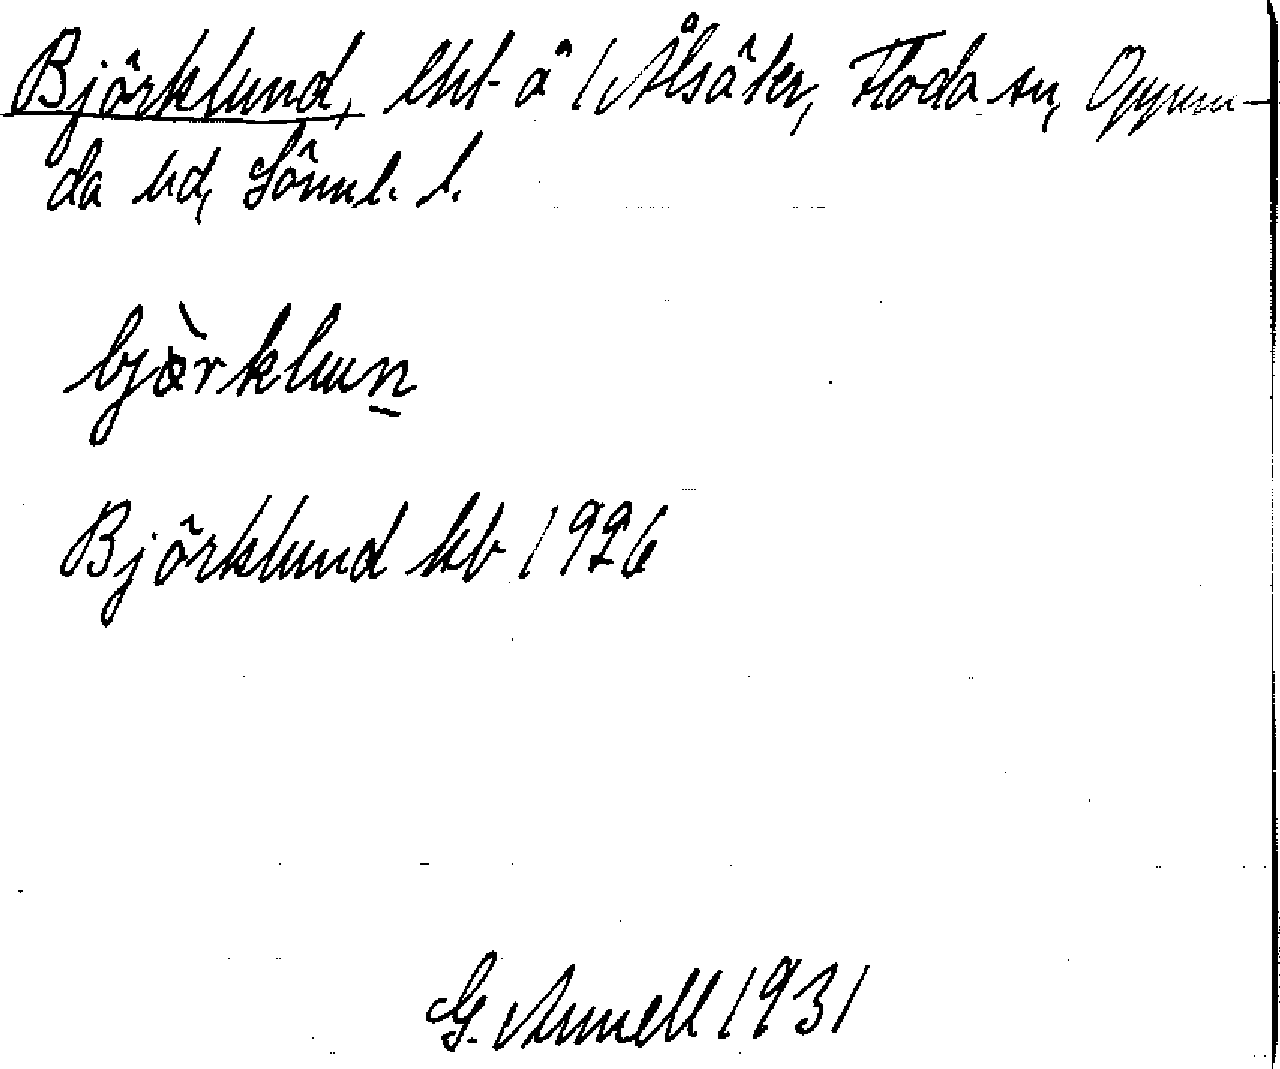 Björklund, lht å 1 Ålsäter, Floda sn, Oppun-
da hd, Söml. l.
bjärklun
Björklund kb 1926
G. Annell 1931